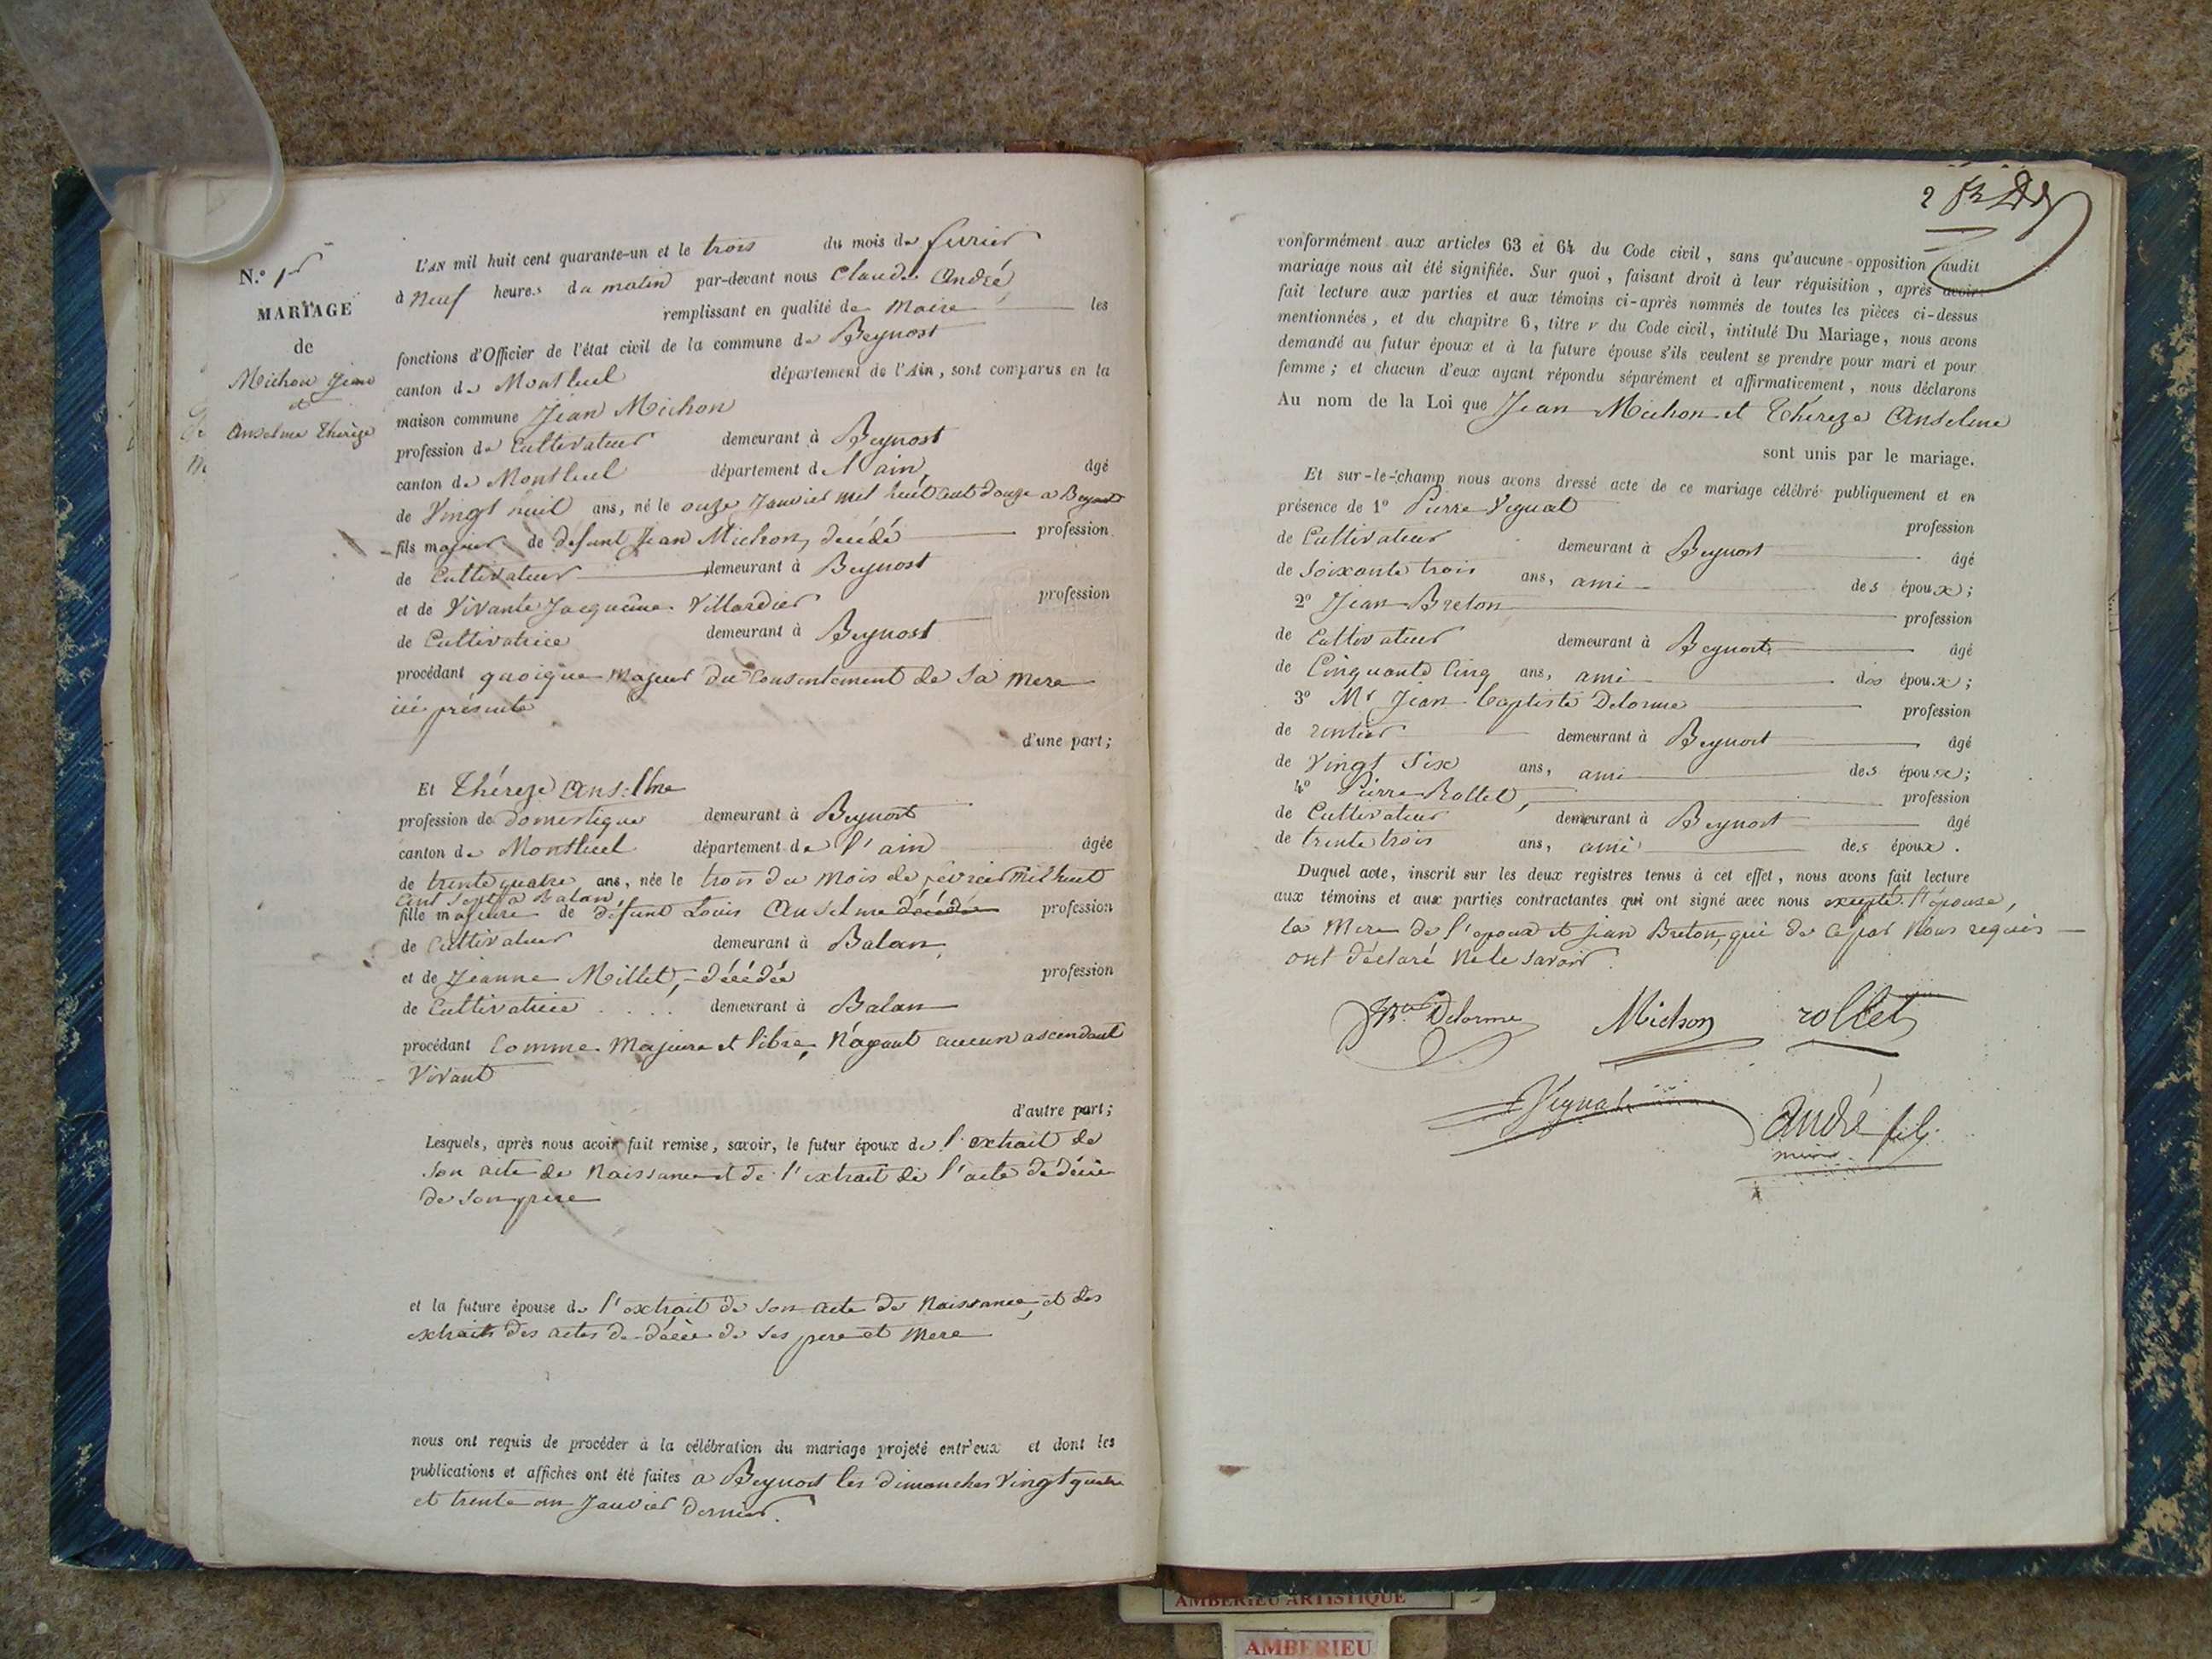 N.º 1er
MARIAGE
de
Michon Jean
et
Anselme Thérèze
L'AN mil huit cent quarante-un et le trois du mois de fevrier
à neuf heures du matin par-devant nous Claude André,
remplissant en qualité de Maire les
fonctions d'Officier de l'état civil de la commune de Beynost
canton de Montluel département de l'Ain, sont comparus en la
maison commune Jean Michon
profession de Cultivateur demeurant à Beynost
canton de Montluel département de l'ain, âgé
de Vingt huit ans, né le onze Janvier mil huit cent douze a Beynost
fils majeur de defunt Jean Michon, décédé profession
de Cultivateur demeurant à Beynost
et de Vivante Jacqueline Villardier profession
de Cultivatrice demeurant à Beynost
procédant quoique Majeur du Consentement de sa mere
ici présente
d'une part;
Et Théreze Anselme
profession de domestique demeurant à Beynost
canton de Montluel département de l'ain âgée
de trente quatre ans, née le trois du mois de fevrier mil huit
cent sept a Balan,
fille majeure de défunt Louis Anselme décédé profession
de Cultivateur demeurant à Balan,
et de Jeanne Millet, décédée profession
de Cultivatrice demeurant à Balan
procédant Comme Majeure et libre, N'ayant aucun ascendant
Vivant
d'autre part;
Lesquels, après nous avoir fait remise, savoir, le futur époux de l'extrait de
son acte de Naissance et de l'extrait de l'acte de décès
de son pere
et la future épouse de l'extrait de son acte de Naissance, et des
extraits des actes de décès de ses pere et Mere
nous ont requis de procéder à la célébration du mariage projeté entr'eux et dont les
publications et affiches ont été faites a Beynost les dimanches Vingt quatre
et trente un Janvier dernier.
2
conformément aux articles 63 et 64 du Code civil, sans qu'aucune opposition audit
mariage nous ait été signifiée. Sur quoi, faisant droit à leur réquisition, après avoir
fait lecture aux parties et aux témoins ci-après nommés de toutes les pièces ci-dessus
mentionnées, et du chapitre 6, titre v du Code civil, intitulé Du Mariage, nous avons
demandé au futur époux et à la future épouse s'ils veulent se prendre pour mari et pour
femme; et chacun d'eux ayant répondu séparément et affirmativement, nous déclarons
Au nom de la Loi que Jean Michon et Théreze Anselme
sont unis par le mariage.
Et sur-le-champ nous avons dressé acte de ce mariage célébré publiquement et en
présence de 1º Pierre Vignat
profession
de Cultivateur demeurant à Beynost âgé
de soixante trois ans, ami des époux;
2º Jean Breton profession
de Cultivateur demeurant à Beynost âgé
de Cinquante Cinq ans, ami des époux;
3º Mr Jean Baptiste Delorme profession
de rentier demeurant à Beynost âgé
de Vingt Six ans, ami des époux;
4º Pierre Rollet, profession
de Cultivateur demeurant à Beynost âgé
de trente trois ans, ami des époux.
Duquel acte, inscrit sur les deux registres tenus à cet effet, nous avons fait lecture
aux témoins et aux parties contractantes qui ont signé avec nous excepté l'épouse,
la Mere de l'epoux et Jean Breton, qui de ce par Nous requis
ont déclaré Ne le savoir.
Delorme Michon rollet
Vignat André fils
AMBERIEU ARTISTIQUE
AMBERIEU